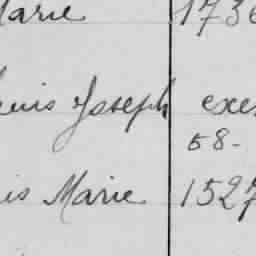 Marie 1736
ouis Joseph exe
58-
is Marie 1527